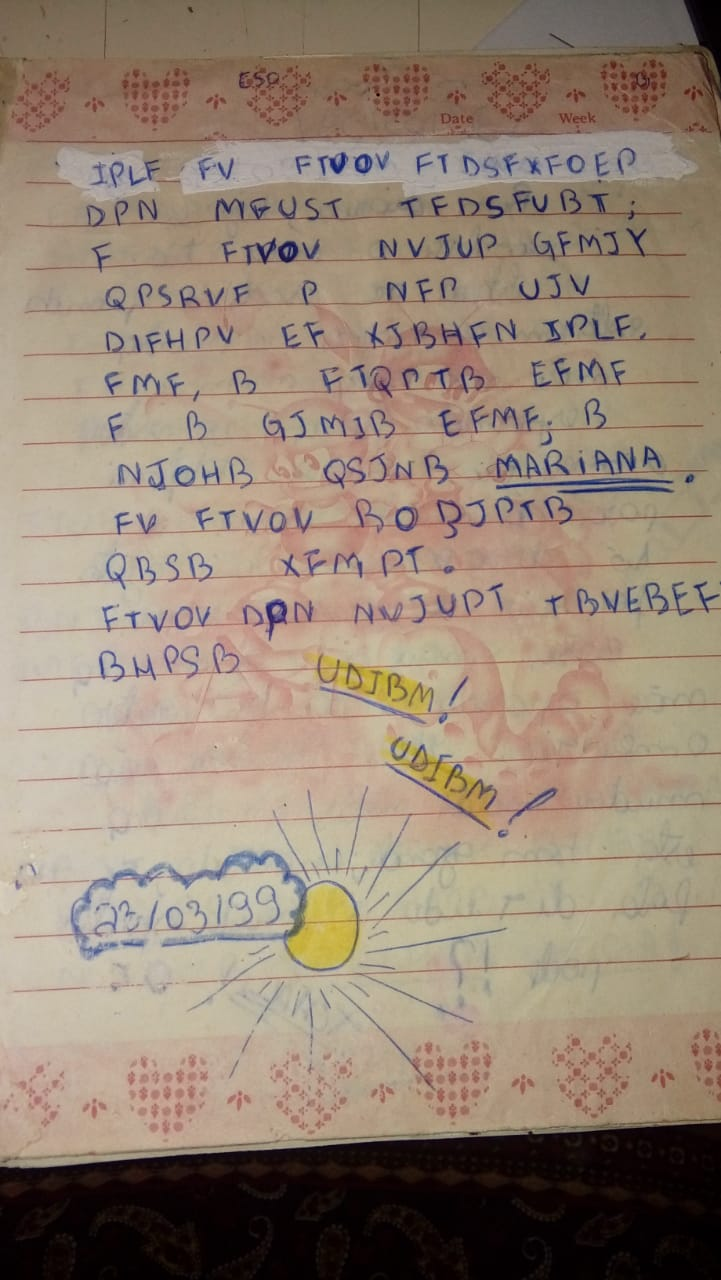 ESP
Date Week
IPLF FV FTVOV FTDSFXFOEP
DPN MFUST TFDSFUBT;
F FTVOV NVJUP GFMJY
QPSRVF P NFP UJV
DIFHPV EF XJBHFN IPLF.
FMF, B FTQPTB EFMF
F B GJMIB EFMF; B
NJOHB QSJNB MARiANA.
FV FTVOV BODJPTB
QBSB XFMPT.
FTVOV DPN NVJUPT TBVEBEF
BHPSB UDIBM!
UDIBM!
23/03/99